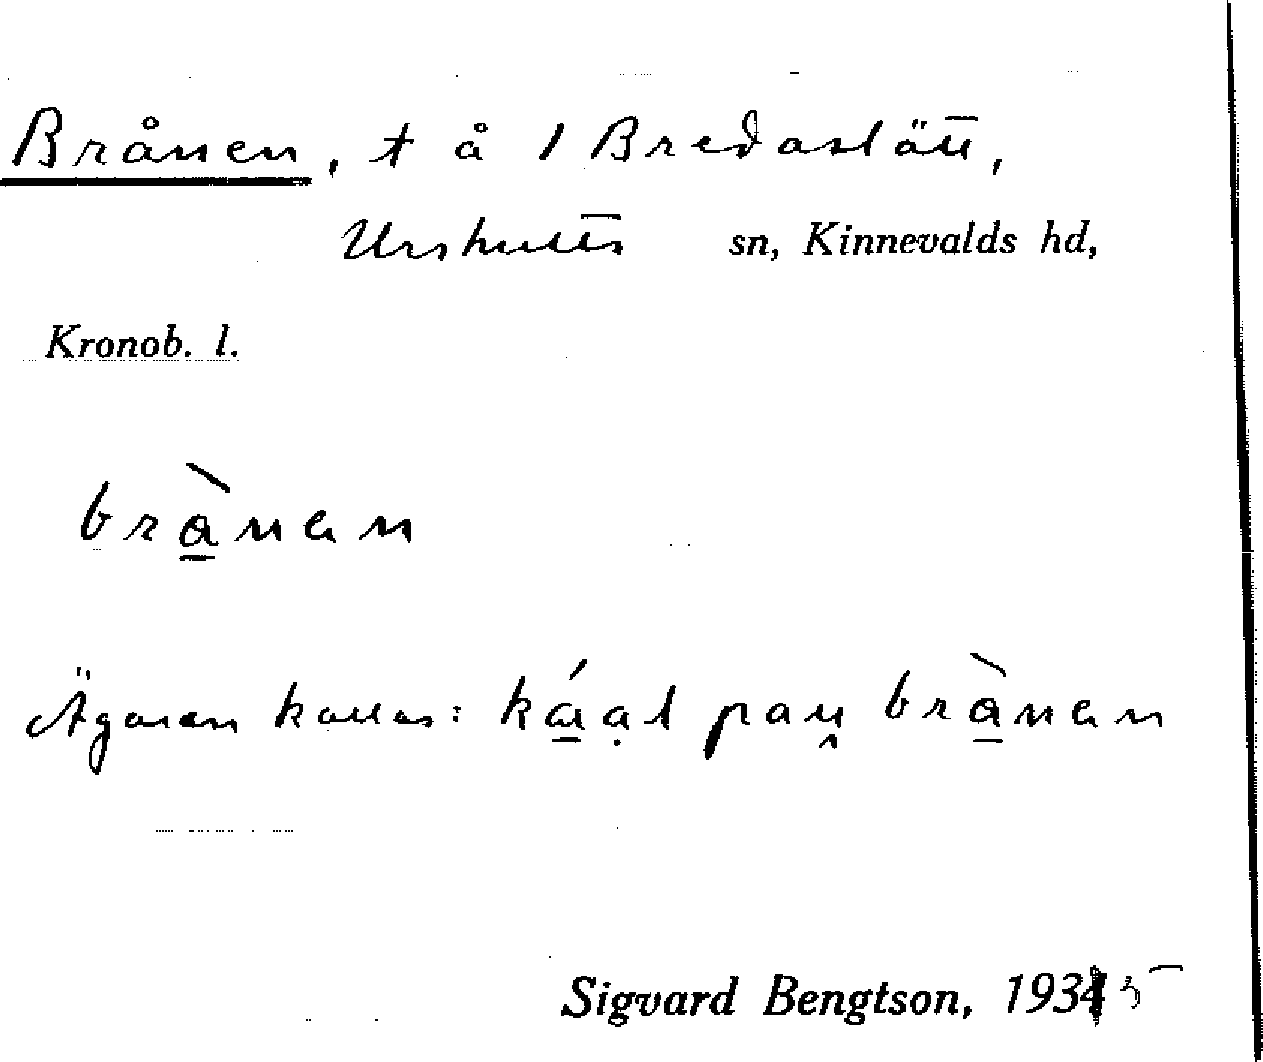 Brånen, t å 1 Bredaslätt,
Urshults sn, Kinnevalds hd,
Kronob. l.
brànan
Ägaren kallas: káạl pau̯ brànan
Sigvard Bengtson, 1935